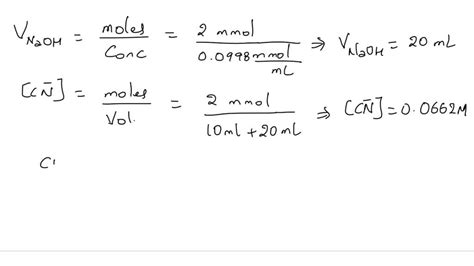 V_NaOH = moles / Conc = 2 mmol / 0.0998 mmol/mL ⇒ V_NaOH = 20 mL
[CN̄] = moles / Vol. = 2 mmol / 10ml + 20mL ⇒ [CN̄] = 0.0662M
C'